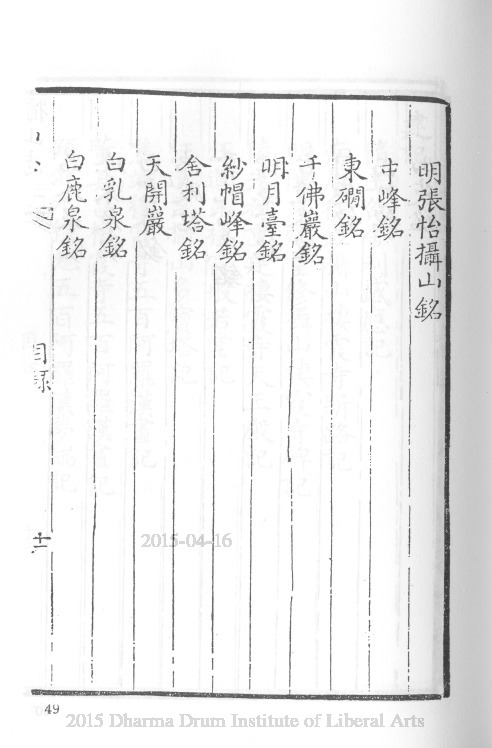 明張怡攝山銘
中峰銘
東磵銘
千佛巖銘
明月臺銘
紗帽峰銘
舍利塔銘
天開巖
白乳泉銘
白鹿泉銘
目錄
十二
2015-04-16
49
2015 Dharma Drum Institute of Liberal Arts